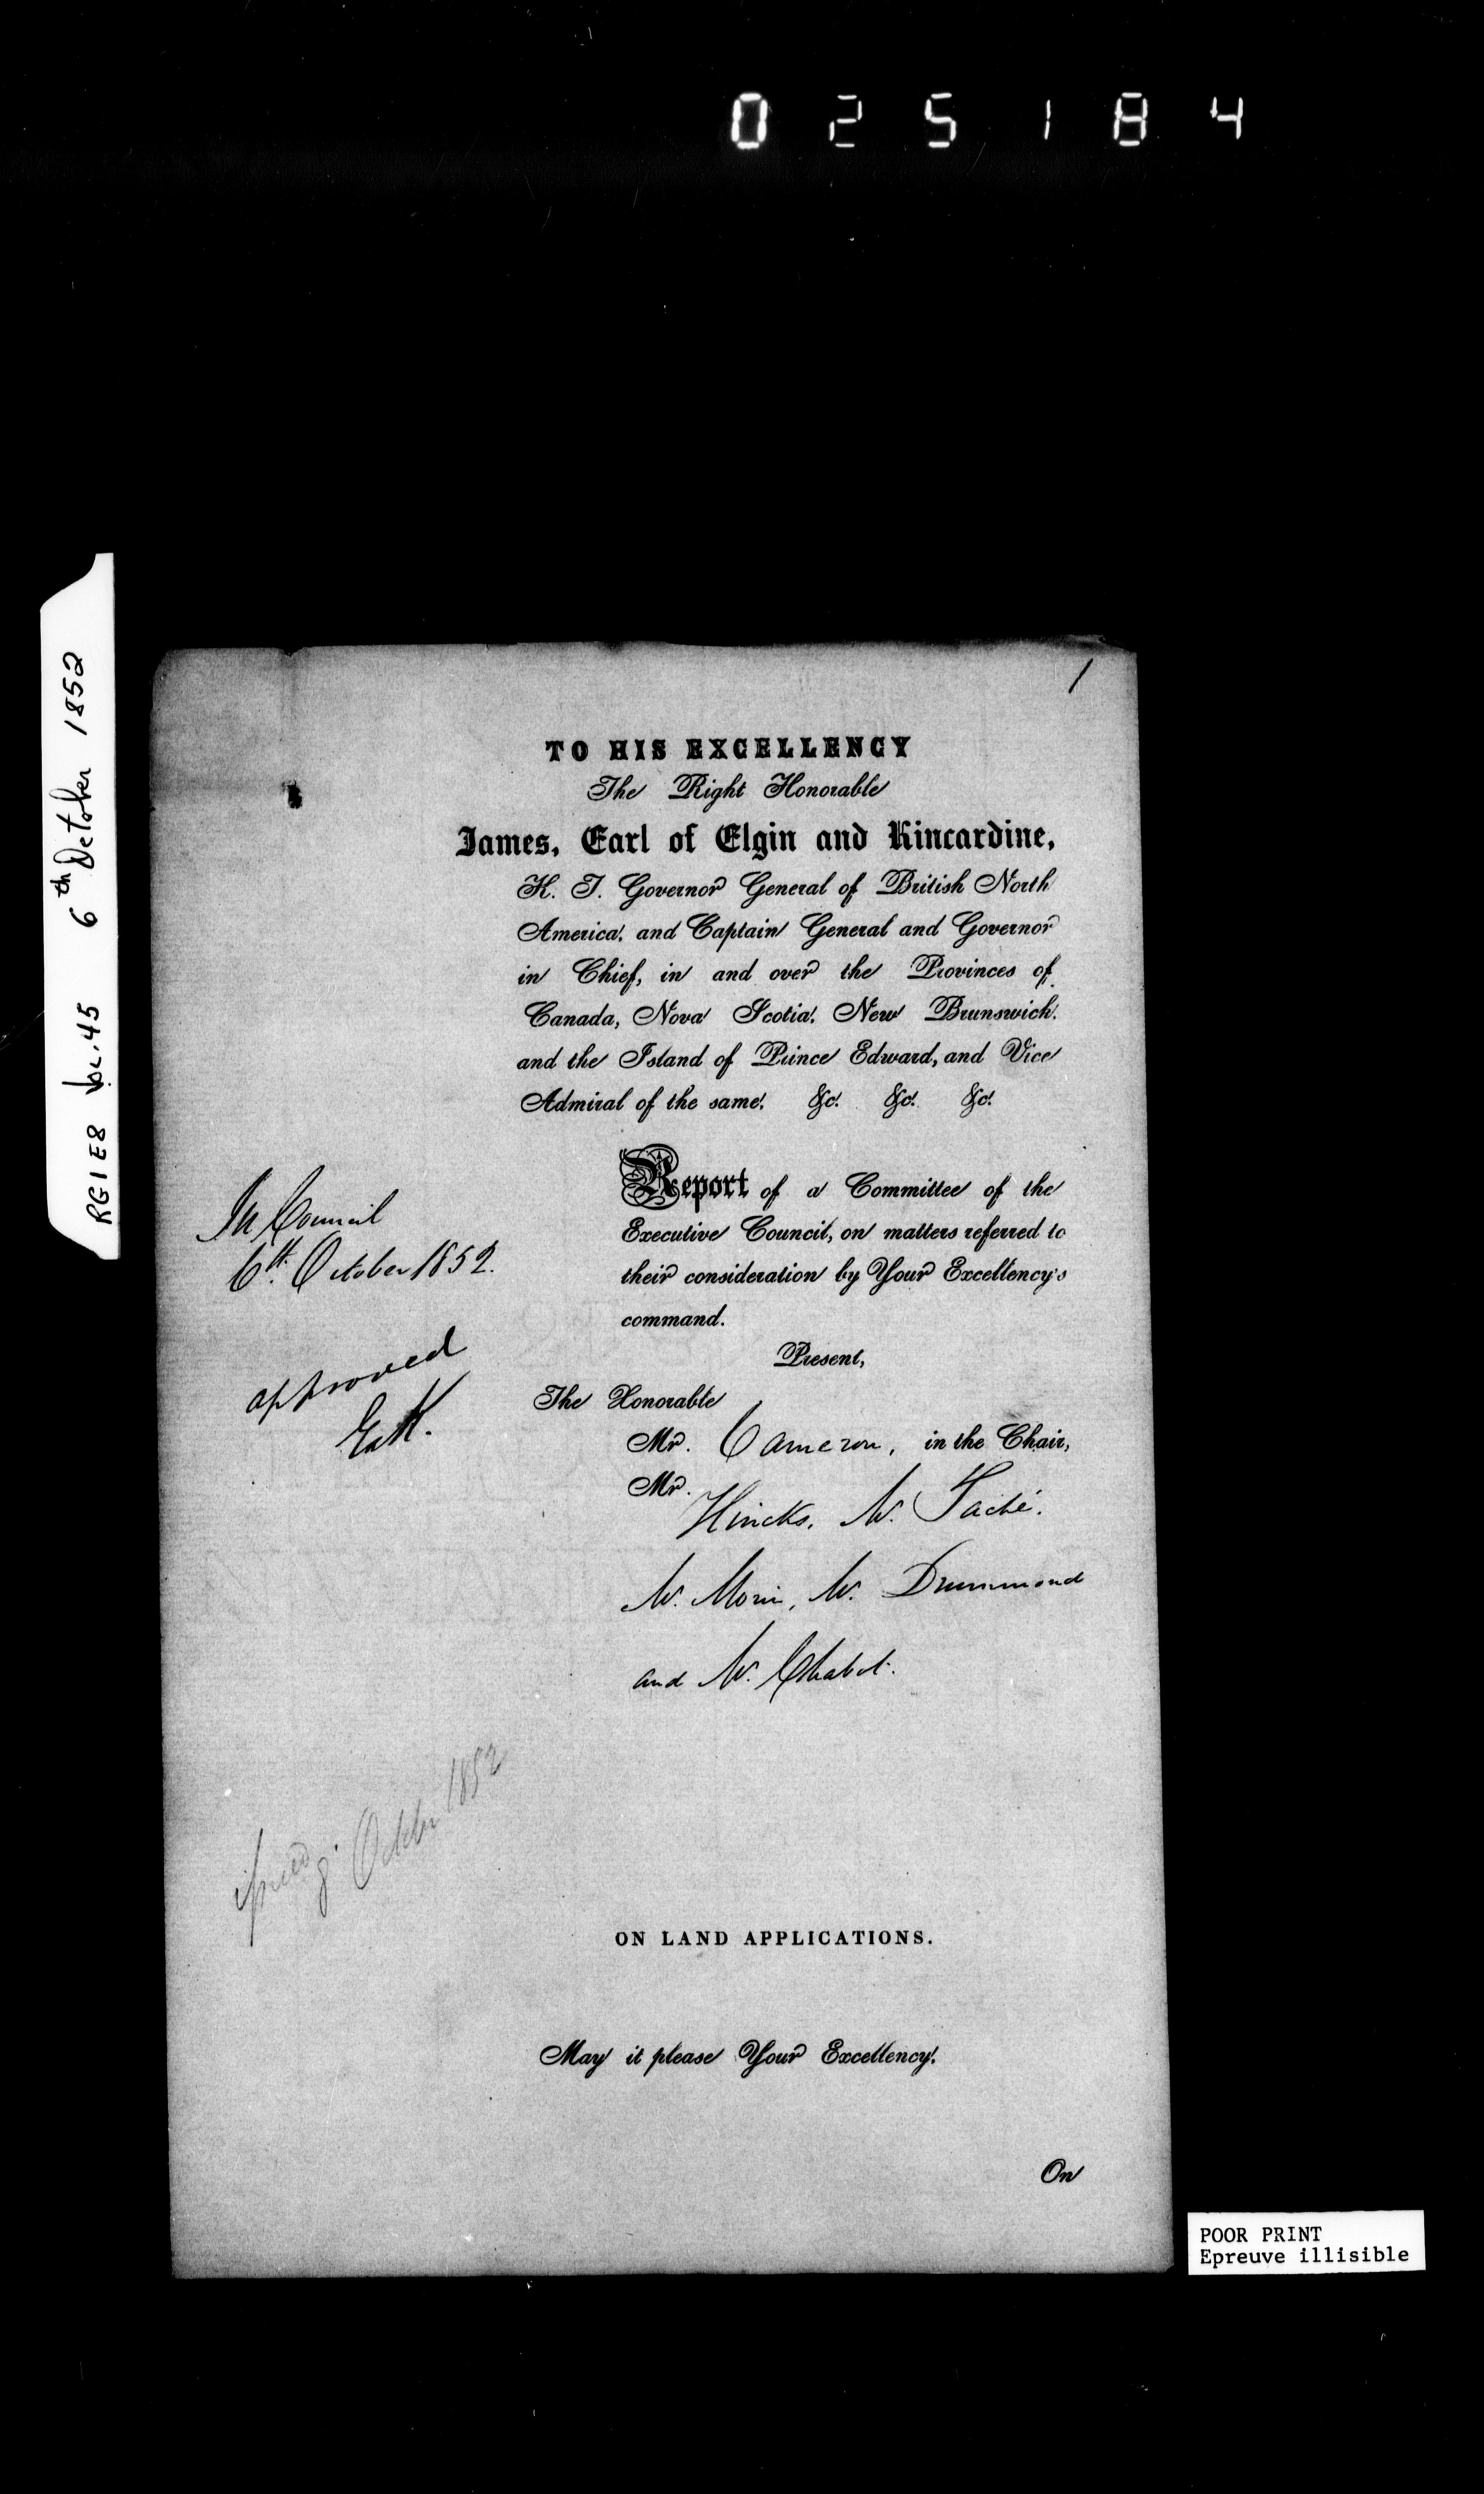 0 2 5 1 8 4
RG1E8 Vol.45 6th October 1852
1
TO HIS EXCELLENCY
The Right Honorable
James, Earl of Elgin and Kincardine,
K. T. Governor General of British North
America, and Captain General and Governor
in Chief, in and over the Provinces of
Canada, Nova Scotia, New Brunswick,
and the Island of Prince Edward, and Vice
Admiral of the same, &c. &c. &c.
In Council
6th October 1852.
approved
E&K.
Report of a Committee of the
Executive Council, on matters referred to
their consideration by Your Excellency's
command.
Present,
The Honorable
Mr. Cameron, in the Chair,
Mr.
Hincks, Mr. Taché.
Mr. Morin, Mr. Drummond
and Mr. Chabot.
October 1852
ON LAND APPLICATIONS.
May it please Your Excellency,
On
POOR PRINT
Epreuve illisible